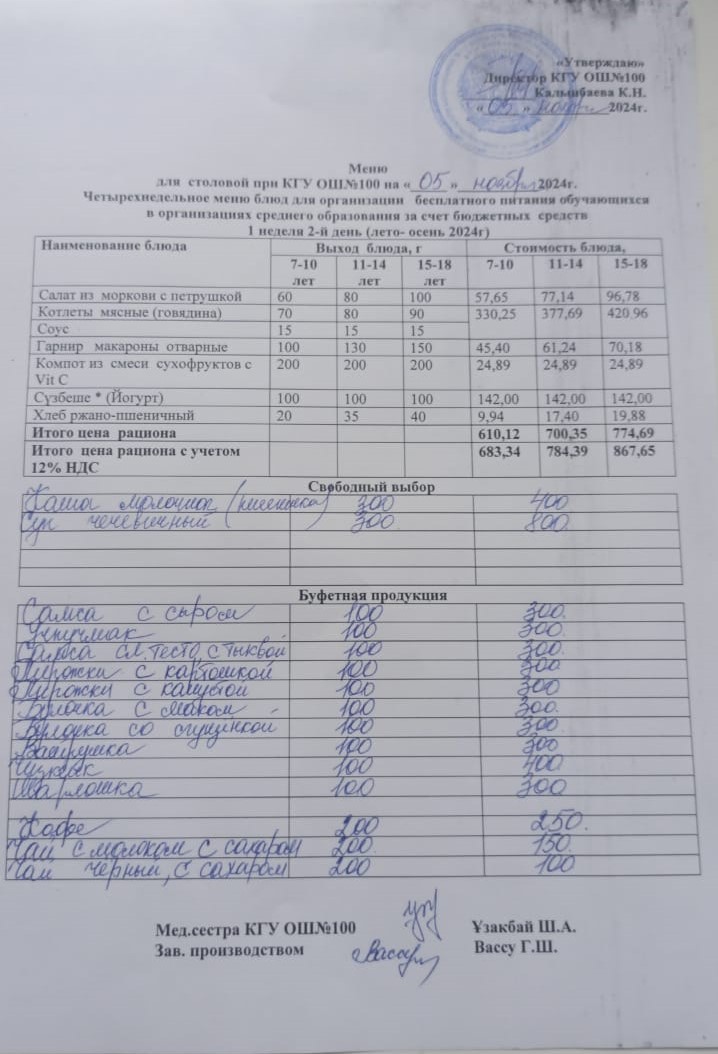 «Утверждаю»
Директор КГУ ОШ№100
Калыбаева К.Н.
« 05 » ноября 2024г.
Меню
для столовой при КГУ ОШ№100 на « 05 » ноября 2024г.
Четырехнедельное меню блюд для организации бесплатного питания обучающихся
в организациях среднего образования за счет бюджетных средств
1 неделя 2-й день (лето- осень 2024г)
Наименование блюда Выход блюда, г Стоимость блюда,
7-10 лет 11-14 лет 15-18 лет 7-10 11-14 15-18
Салат из моркови с петрушкой 60 80 100 57,65 77,14 96,78
Котлеты мясные (говядина) 70 80 90 330,25 377,69 420,96
Соус 15 15 15
Гарнир макароны отварные 100 130 150 45,40 61,24 70,18
Компот из смеси сухофруктов с 200 200 200 24,89 24,89 24,89
Vit C
Сүзбеше * (Йогурт) 100 100 100 142,00 142,00 142,00
Хлеб ржано-пшеничный 20 35 40 9,94 17,40 19,88
Итого цена рациона 610,12 700,35 774,69
Итого цена рациона с учетом 683,34 784,39 867,65
12% НДС
Свободный выбор
Каша молочная 300 400
Суп чечевичный 300 800
Буфетная продукция
Самса с сыром 100 300.
Учпучмак 100 300.
Самса сл. тесто с тыквой 100 300.
Пирожки с картошкой 100 300
Пирожки с капустой 100 300
Булочка с маком 100 300.
Булочка со сгущенкой 100 300
Ватрушка 100 300
Чизкейк 100 400
Шарлотка 100 300
Кофе 200 250.
Чай с молоком с сахаром 200. 150.
Чай черный, с сахаром 200 100
Мед.сестра КГУ ОШ№100 Ұзакбай Ш.А.
Зав. производством Вассу Г.Ш.